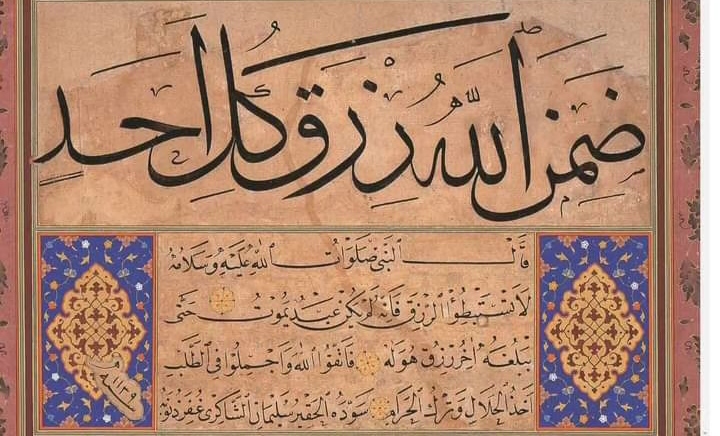 ضَمِنَ اللهُ رِزْقَ كُلِّ اَحَدٍ
قَالَ النَّبِيُّ صَلَوَاتُ اللهِ عَلَيْهِ وَسَلَامُهُ
لَا تَسْتَبْطِؤُا الرِّزْقَ فَاِنَّهُ لَمْ يَكُنْ عَبْدٌ يَمُوتُ حَتَّى
يَبْلُغَهُ اٰخِرُ رِزْقٍ هُوَ لَهُ فَاتَّقُوا اللهَ وَاَجْمِلُوا فِي الطَّلَبِ
اَخْذُ الْحَلَالِ وَتَرْكُ الْحَرَامِ سَوَّدَهُ الْحَقِيرُ سُلَيْمَان الشَّاكِرِي غُفِرَ ذُنُوبُهُ
سنه